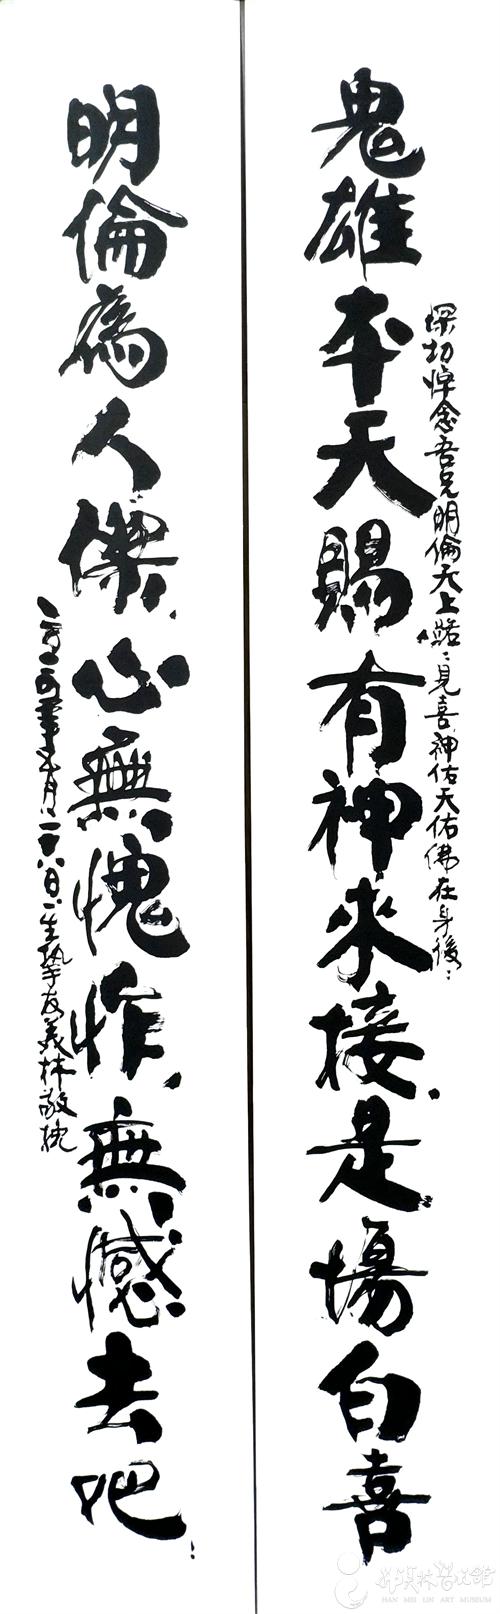 深切悼念吾兄明倫天上路:見喜神佑天佑佛在身後
鬼雄夲天賜有神來接是場白喜
明倫為人傑心無愧怍無憾去吧
年五月二十八日一生摯友美林敬挽
韩美林艺术馆
HAN MEI LIN ART MUSEUM